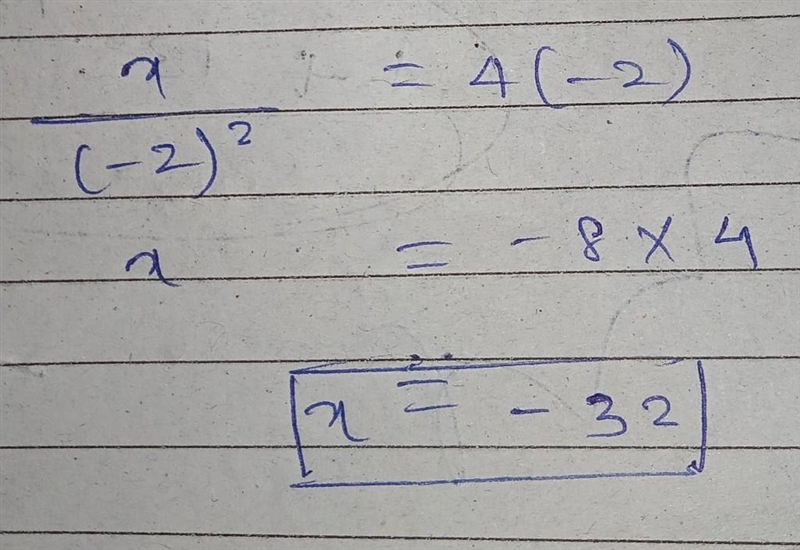 x / (-2)² = 4(-2)
x = -8 × 4
x = -32